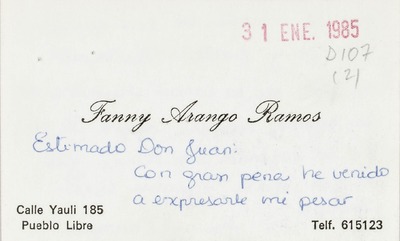 31 ENE. 1985
D107
(2)
Fanny Arango Ramos
Estimado Don Juan:
Con gran pena he venido
a expresarle mi pesar
Calle Yauli 185
Pueblo Libre
Telf. 615123